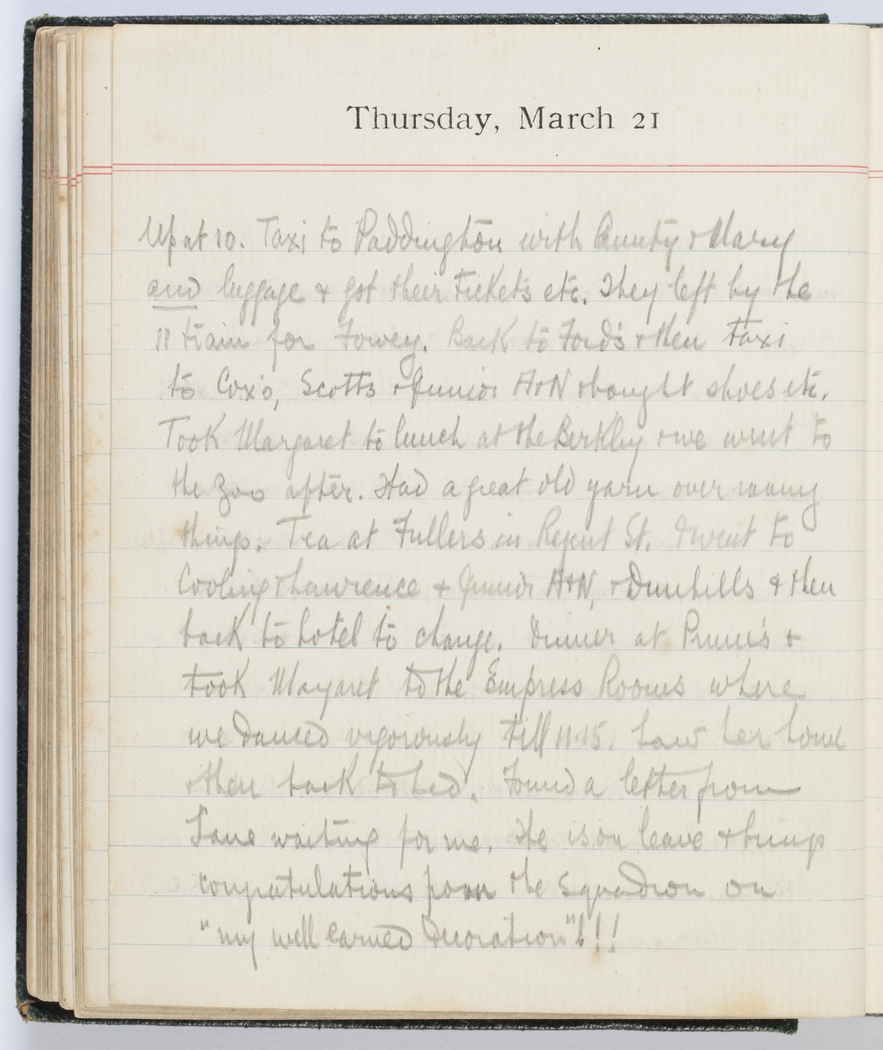 Thursday, March 21
Up at 10. Taxi to Paddington with Aunty & Mary
and luggage & got their tickets etc. They left by the
11 train for Fowey. Back to Ford's & then taxi
to Cox's, Scotts & Junior A&N & bought shoes etc.
Took Margaret to lunch at the Berkley & we went to
the Zoo after. Had a great old yarn over many
things. Tea at Fullers in Regent St. I went to
Cooling & Lawrence & Junior A&N, & Dunhills & then
back to hotel to change. Dinner at Prince's &
took Margaret to the Empress Rooms where
we danced vigorously till 11.15. Saw her home
& then back to bed. Found a letter from
Lane waiting for me. He is on leave & brings
congratulations from the Squadron on
"my well earned Decoration"!!!